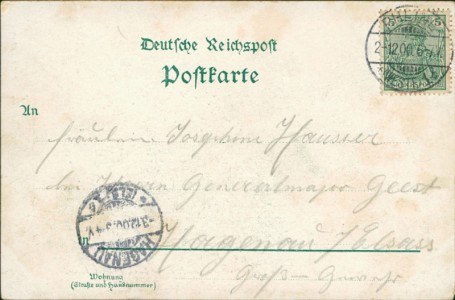 Deutsche Reichspost
Postkarte
An
Fräulein Josephine Hausser
bei Herrn Generalmajor Geest
in Hagenau / Elsass
Wohnung
(Straße und Hausnummer)
2.12.00.
HAGENAU
3.12.00.